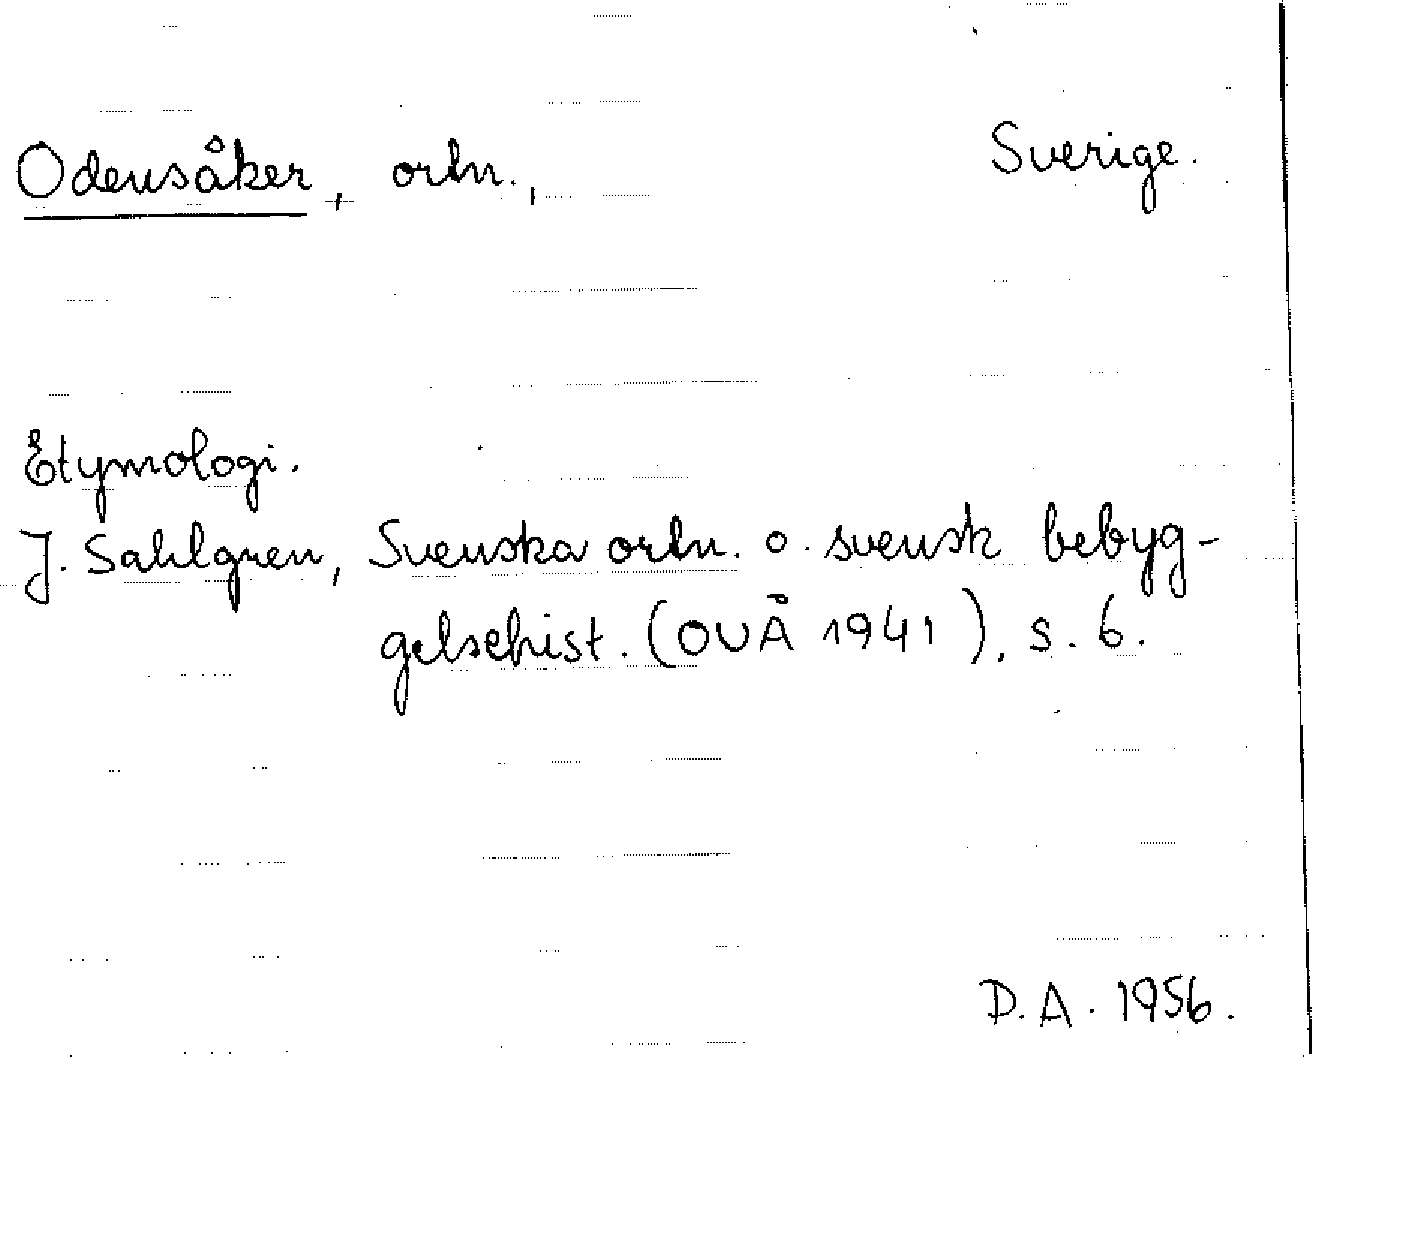 Odensåker, ortn., Sverige.
Etymologi.
J. Sahlgren, Svenska ortn. o. svensk bebyg-
gelsehist. (OUÅ 1941), s. 6.
D.A. 1956.